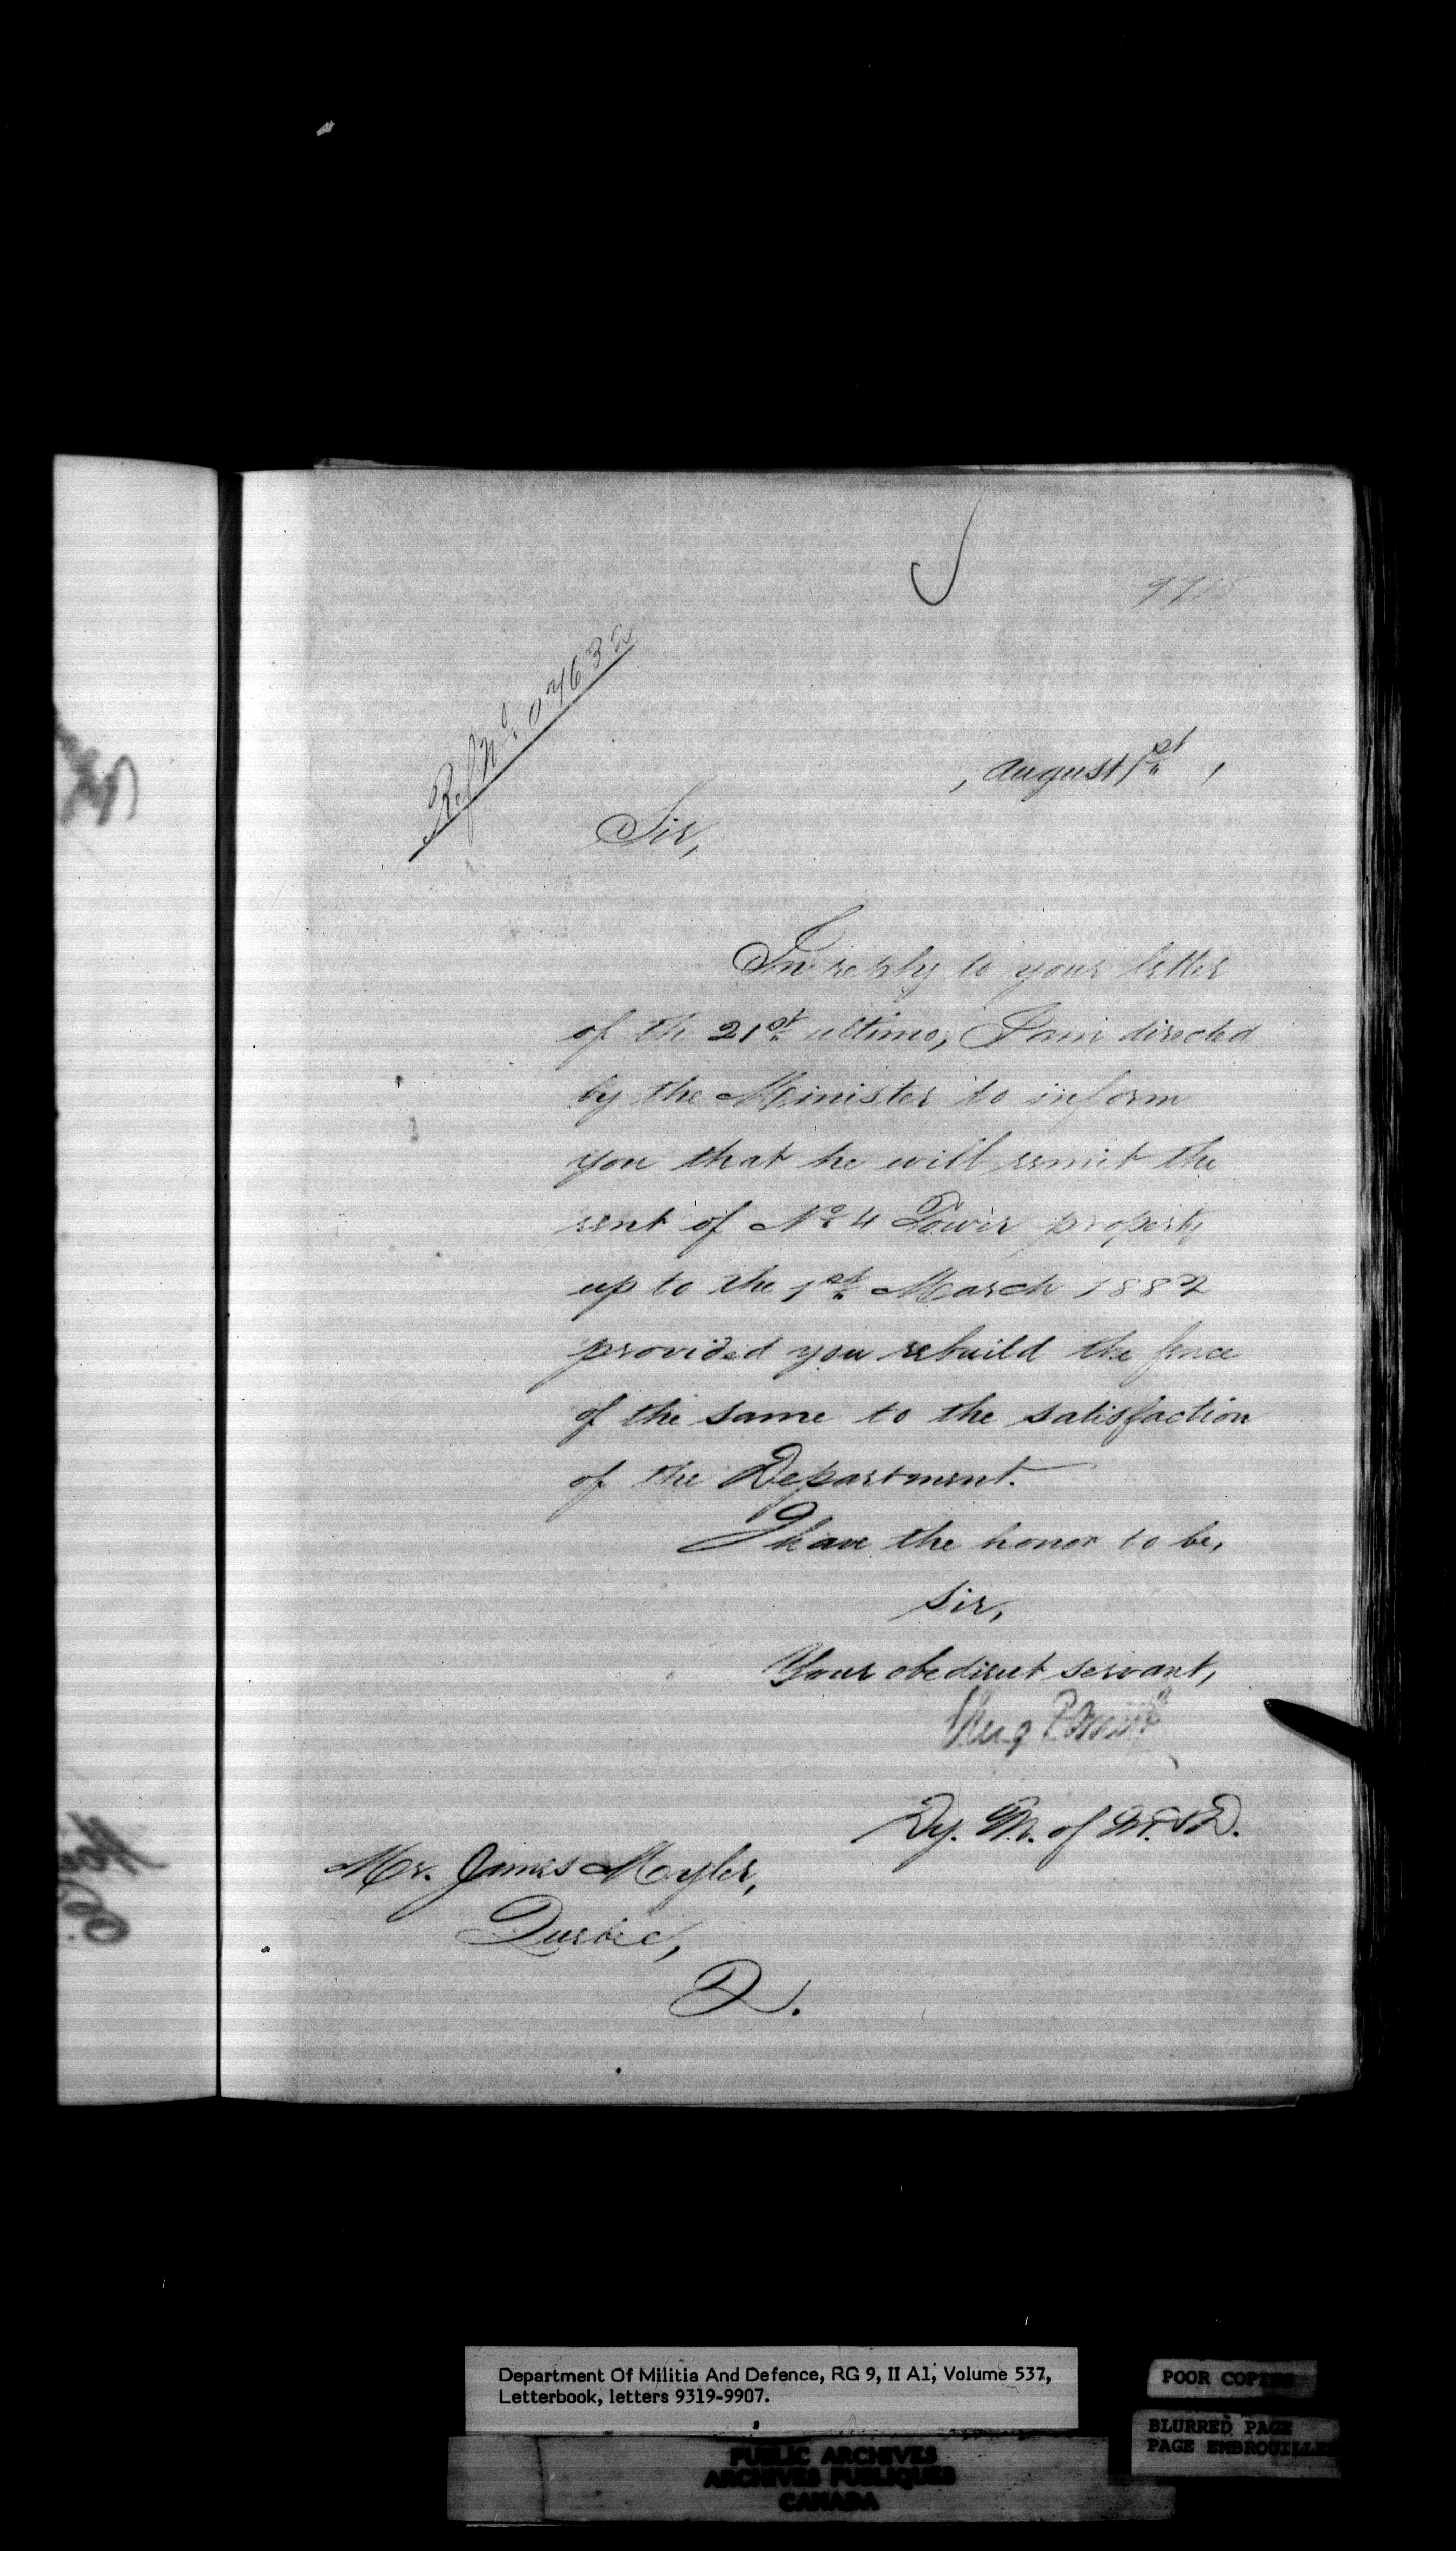 Ref No. 07632
, August 1st ,
Sir,
In reply to your letter
of the 21st ultimo, I am directed
by the Minister to inform
you that he will remit the
rent of No. 4 Tower property
up to the 1st March 1882
provided you rebuild the fence
of the same to the satisfaction
of the Department.
I have the honor to be,
Sir,
Your obedient servant,
Dy. M. of M. & D.
Mr. James Moyler,
Quebec,
Q.
Department Of Militia And Defence, RG 9, II A1, Volume 537,
Letterbook, letters 9319-9907.
POOR COPIES
BLURRED PAGE
PAGE EMBROUILLEE
PUBLIC ARCHIVES
ARCHIVES PUBLIQUES
CANADA